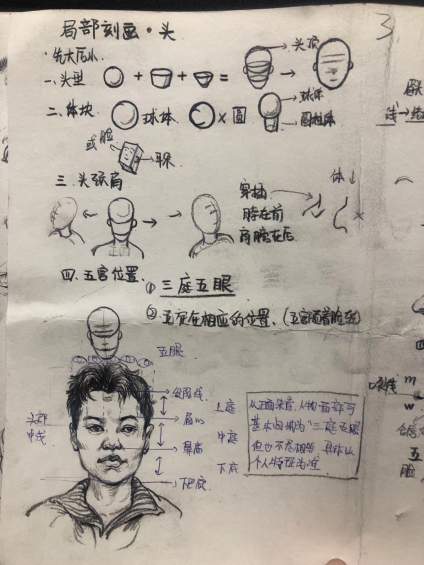 局部刻画·头
·先大后小.
一、头型
头顶
二、体块
球体
圆
球体
圆柱体
或脸
耳朵
三、头颈肩
穿插
脖在前
肩膀在后
体
四、五官位置.
① 三庭五眼
② 五官在相应的位置、(五官随着脸转)
五眼
发际线
上庭
眉心
中庭
鼻底
下庭
下巴底
头部
中线
从正面来看,人物面部可
基本归纳为"三庭五眼
但也不尽相等 具体以
个人特征为准
3.